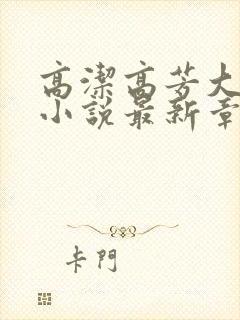 高潔高芳大
小説最新章
卡門